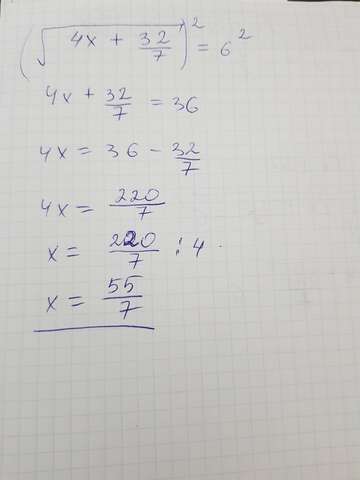 (√(4x + 32/7))² = 6²
4x + 32/7 = 36
4x = 36 - 32/7
4x = 220/7
x = 220/7 : 4
x = 55/7